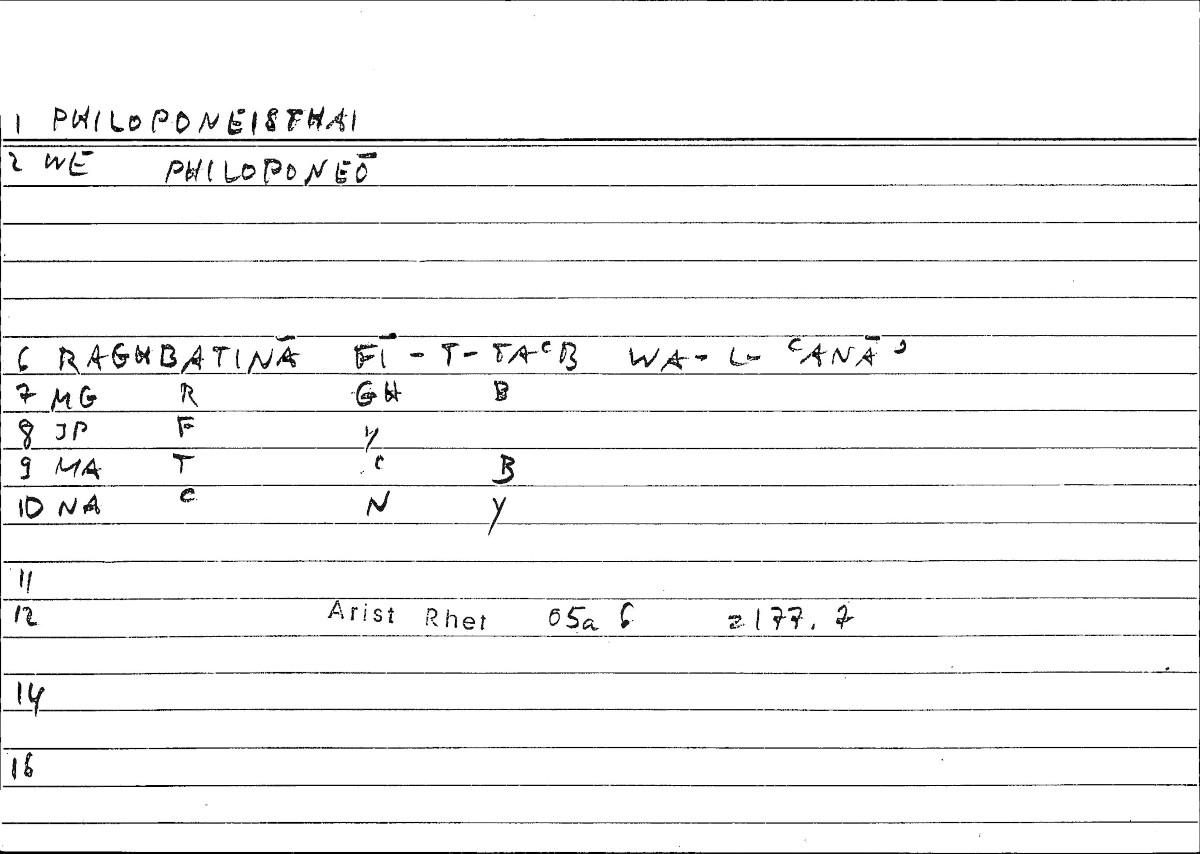 1 PHILOPONEISTHAI
2 WE PHILOPONEŌ
6 RAGHBATINĀ FĪ - T - TAᶜB WA - L - ᶜANĀʾ
7 MG R GH B
8 JP F Y
9 MA T ᶜ B
10 NA ᶜ N Y
11
12 Arist Rhet 05a 6 = 177. 7
14
16